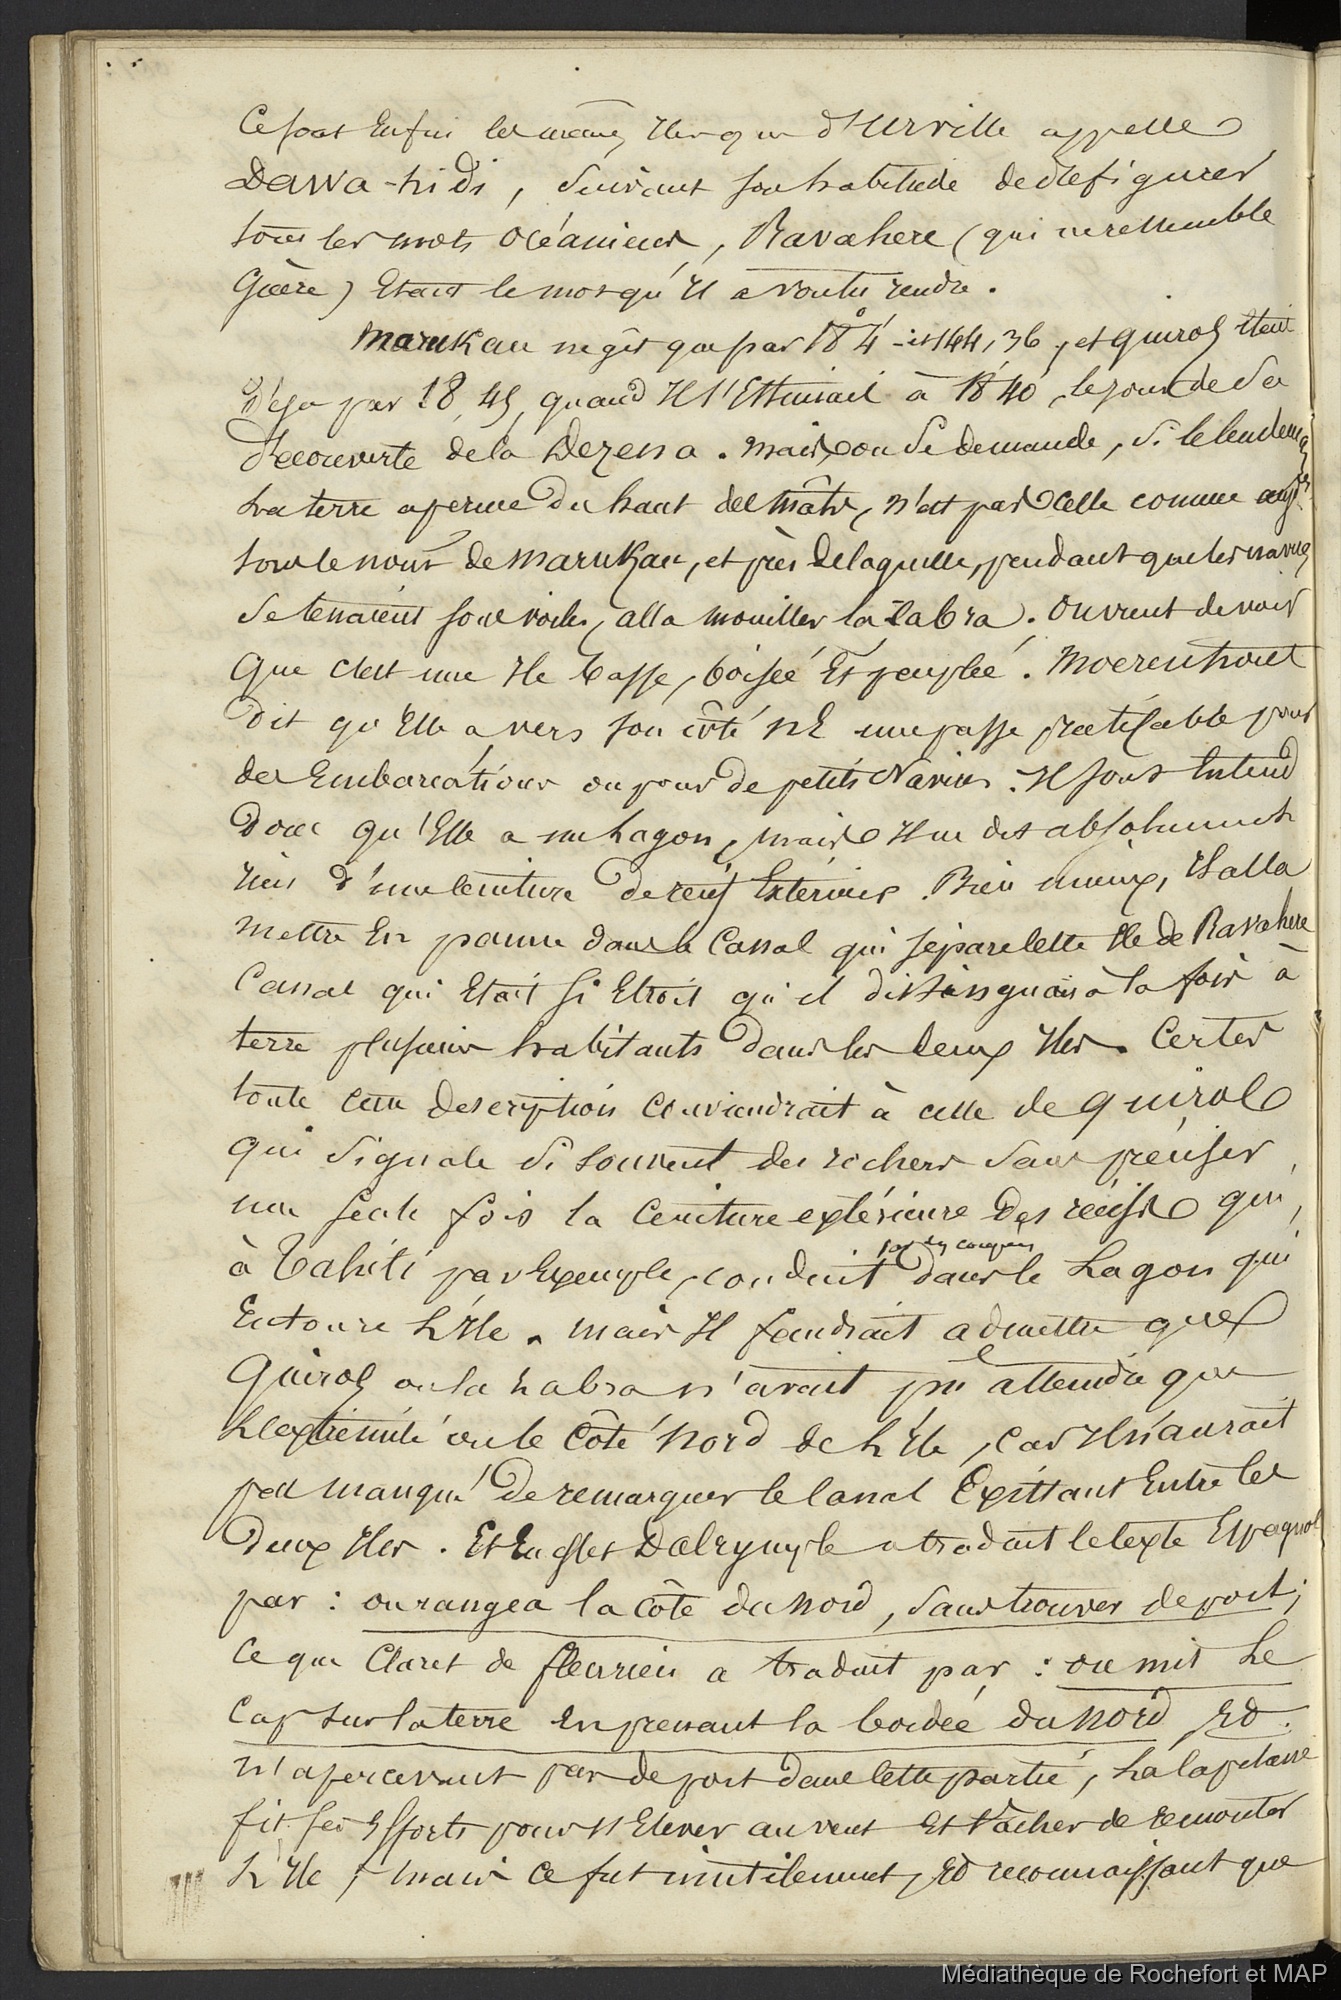 Ce sont enfin les mêmes Iles que d'Urville appelle
Dawa-hidi, suivant son habitude de défigurer
tous les mots Océaniens, Ravahere (qui ne ressemble
Guère) Etait le mot qu'Il a voulu rendre.
Marukau ne gît que par 18° 4' et 144, 36, et Quiros était
Déja par 18, 45, quand Il s'Estimait à 18 40, le jour de Sa
Découverte de la Dezena. Mais on Se demande, si le lendemain
La terre aperçue Du haut des Mâts, n'est pas celle connue aujd.
sous le nom de Marukau, et près de laquelle, pendant que les navires
Se tenaient sous voiles, alla mouiller la Zabra. On vient de voir
Que c'est une Ile basse, boisée Et peuplée. Moerenhout
Dit qu'Elle a vers son côté NE une passe praticable pour
des Embarcations ou pour de petits Navires. Il sous Entend
Donc qu'Elle a un Lagon, mais Il ne dit absolument
rien d'une ceinture de récif Extérieur. Bien mieux, Il alla
Mettre En panne dans le Canal qui sépare cette Ile de Ravahere
Canal qui Etait si Etroit qu'il distinguait à la fois à
terre plusieurs habitants dans les deux Iles. Certes
toute cette description conviendrait à celle de Quiros
Qui signale si souvent des rochers sans préciser
une seule fois la ceinture extérieure des récifs qui,
à Tahiti par Exemple, conduit par des coupures dans le Lagon qui
Entoure L'Ile. Mais Il faudrait admettre que
Quiros ou la Zabra n'avait pu atteindre que
L'extrémité ou le Côté Nord de L'Ile, car Il n'aurait
pas manqué De remarquer le Canal Existant Entre les
Deux Iles. Et En effet Dalrymple a traduit le texte Espagnol
par : on rangea la côte du Nord, sans trouver de port;
Ce que Claret de fleurieu a traduit par : on mit Le
Cap sur la terre en prenant la bordée du Nord, Et
N'apercevant pas de port dans cette partie, La Capitane
fit ses Efforts pour s'Elever au vent Et tâcher de remonter
L'Ile ; mais ce fut inutilement, Et reconnaissant que
Médiathèque de Rochefort et MAP